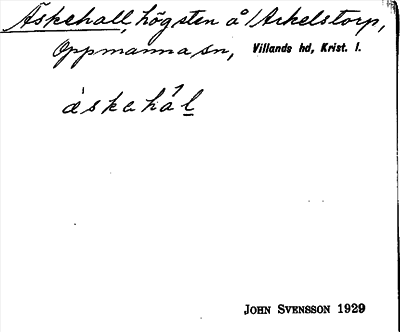 Äskehall, högsten å Arkelstorp,
Oppmanna sn, Villands hd, Krist. l.
æ̀skahál
JOHN SVENSSON 1929